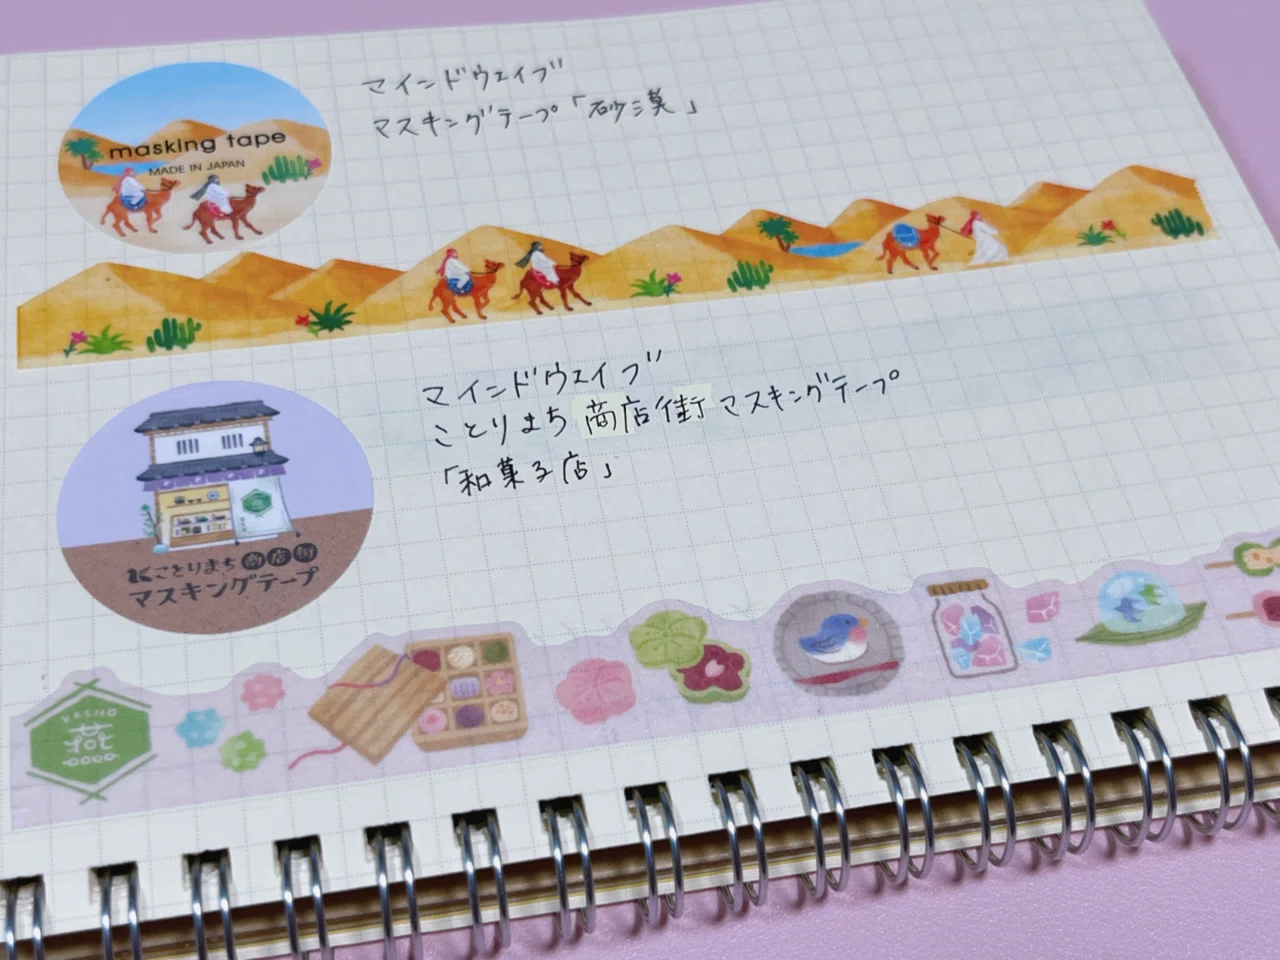 masking tape
MADE IN JAPAN
マインドウェイブ
マスキングテープ「砂漠」
マインドウェイブ
ことりまち商店街マスキングテープ
「和菓子店」
ことりまち商店街
マスキングテープ
燕